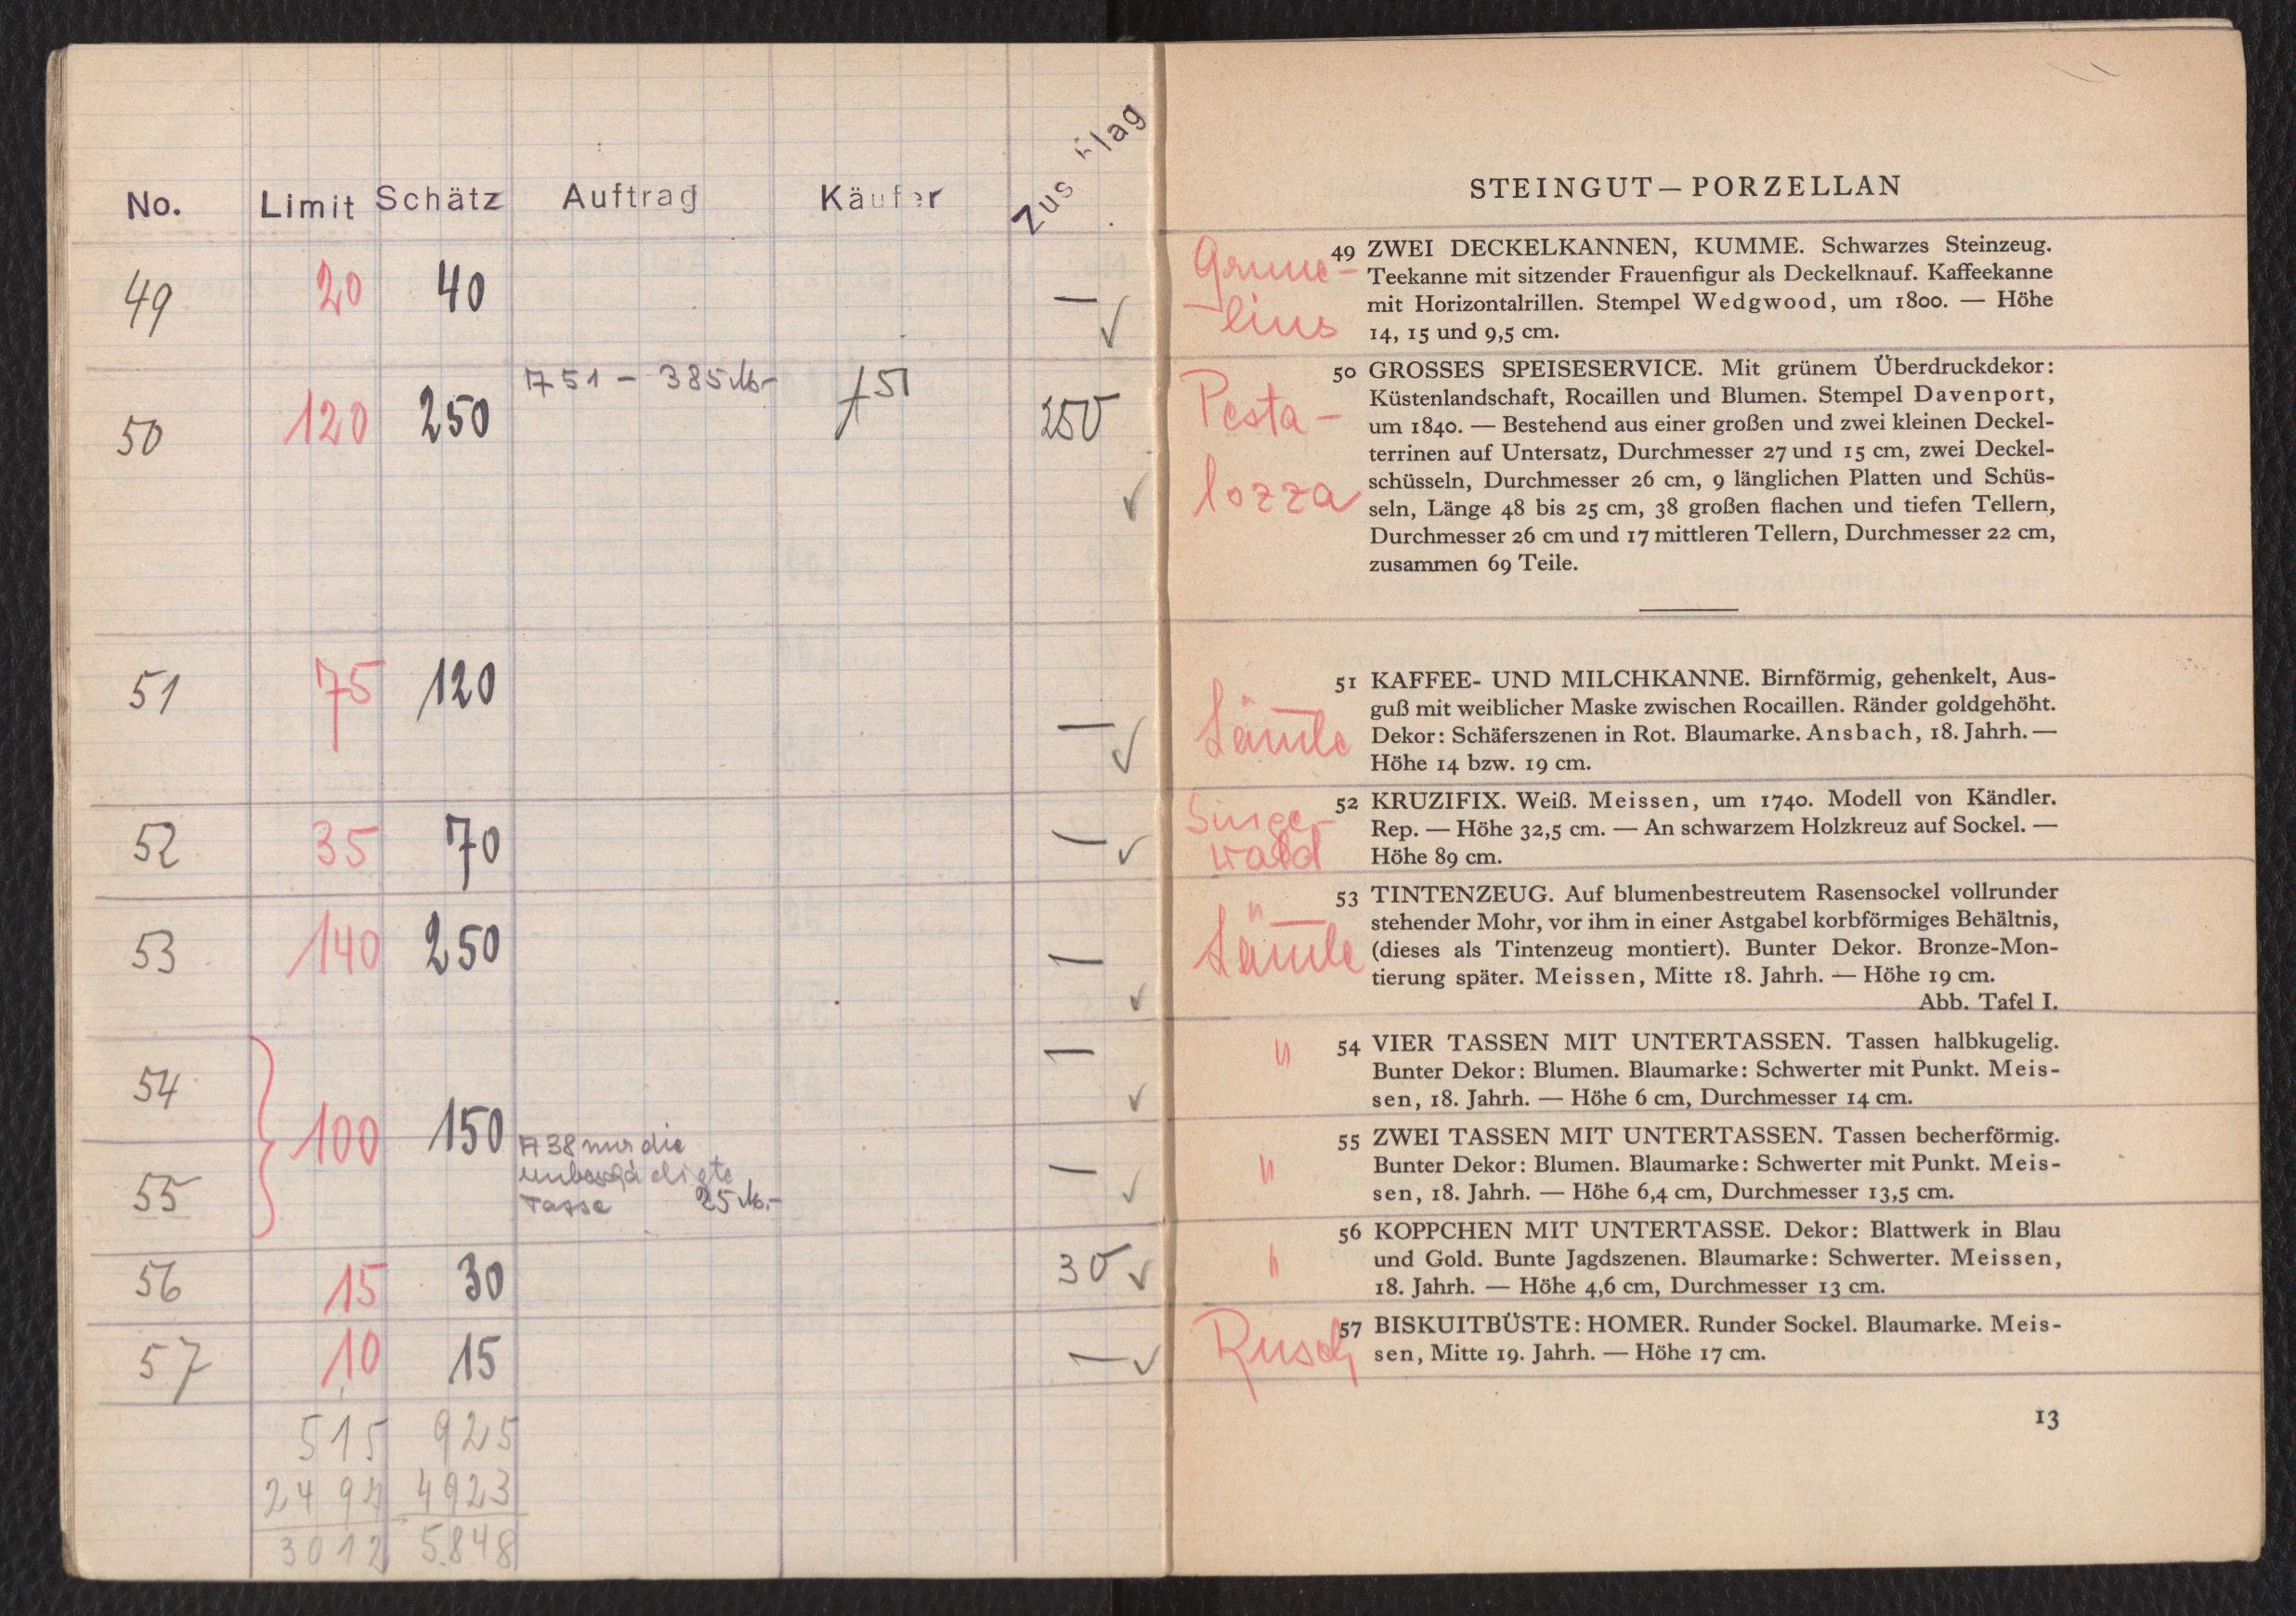 No. Limit Schätz Auftrag Käufer Zuschlag
49 20 40 —
50 120 250 A 51 – 385 M.- A 51 250
51 75 120 —
52 35 70 —
53 140 250 —
54 —
100 150
A 38 nur die
unbeschädigte
55 Tasse 25 M.- —
56 15 30 30
57 10 15 —
515 925
2497 4923
3012 5.848
STEINGUT — PORZELLAN
Grune-
lius
49 ZWEI DECKELKANNEN, KUMME. Schwarzes Steinzeug.
Teekanne mit sitzender Frauenfigur als Deckelknauf. Kaffeekanne
mit Horizontalrillen. Stempel Wedgwood, um 1800. — Höhe
14, 15 und 9,5 cm.
Pesta-
lozza
50 GROSSES SPEISESERVICE. Mit grünem Überdruckdekor:
Küstenlandschaft, Rocaillen und Blumen. Stempel Davenport,
um 1840. — Bestehend aus einer großen und zwei kleinen Deckel-
terrinen auf Untersatz, Durchmesser 27 und 15 cm, zwei Deckel-
schüsseln, Durchmesser 26 cm, 9 länglichen Platten und Schüs-
seln, Länge 48 bis 25 cm, 38 großen flachen und tiefen Tellern,
Durchmesser 26 cm und 17 mittleren Tellern, Durchmesser 22 cm,
zusammen 69 Teile.
51 KAFFEE- UND MILCHKANNE. Birnförmig, gehenkelt, Aus-
guß mit weiblicher Maske zwischen Rocaillen. Ränder goldgehöht.
Dekor: Schäferszenen in Rot. Blaumarke. Ansbach, 18. Jahrh. —
Höhe 14 bzw. 19 cm.
Singe-
wald
52 KRUZIFIX. Weiß. Meissen, um 1740. Modell von Kändler.
Rep. — Höhe 32,5 cm. — An schwarzem Holzkreuz auf Sockel. —
Höhe 89 cm.
53 TINTENZEUG. Auf blumenbestreutem Rasensockel vollrunder
stehender Mohr, vor ihm in einer Astgabel korbförmiges Behältnis,
(dieses als Tintenzeug montiert). Bunter Dekor. Bronze-Mon-
tierung später. Meissen, Mitte 18. Jahrh. — Höhe 19 cm.
Abb. Tafel I.
" 54 VIER TASSEN MIT UNTERTASSEN. Tassen halbkugelig.
Bunter Dekor: Blumen. Blaumarke: Schwerter mit Punkt. Meis-
sen, 18. Jahrh. — Höhe 6 cm, Durchmesser 14 cm.
" 55 ZWEI TASSEN MIT UNTERTASSEN. Tassen becherförmig.
Bunter Dekor: Blumen. Blaumarke: Schwerter mit Punkt. Meis-
sen, 18. Jahrh. — Höhe 6,4 cm, Durchmesser 13,5 cm.
" 56 KOPPCHEN MIT UNTERTASSE. Dekor: Blattwerk in Blau
und Gold. Bunte Jagdszenen. Blaumarke: Schwerter. Meissen,
18. Jahrh. — Höhe 4,6 cm, Durchmesser 13 cm.
Rusch 57 BISKUITBÜSTE: HOMER. Runder Sockel. Blaumarke. Meis-
sen, Mitte 19. Jahrh. — Höhe 17 cm.
13